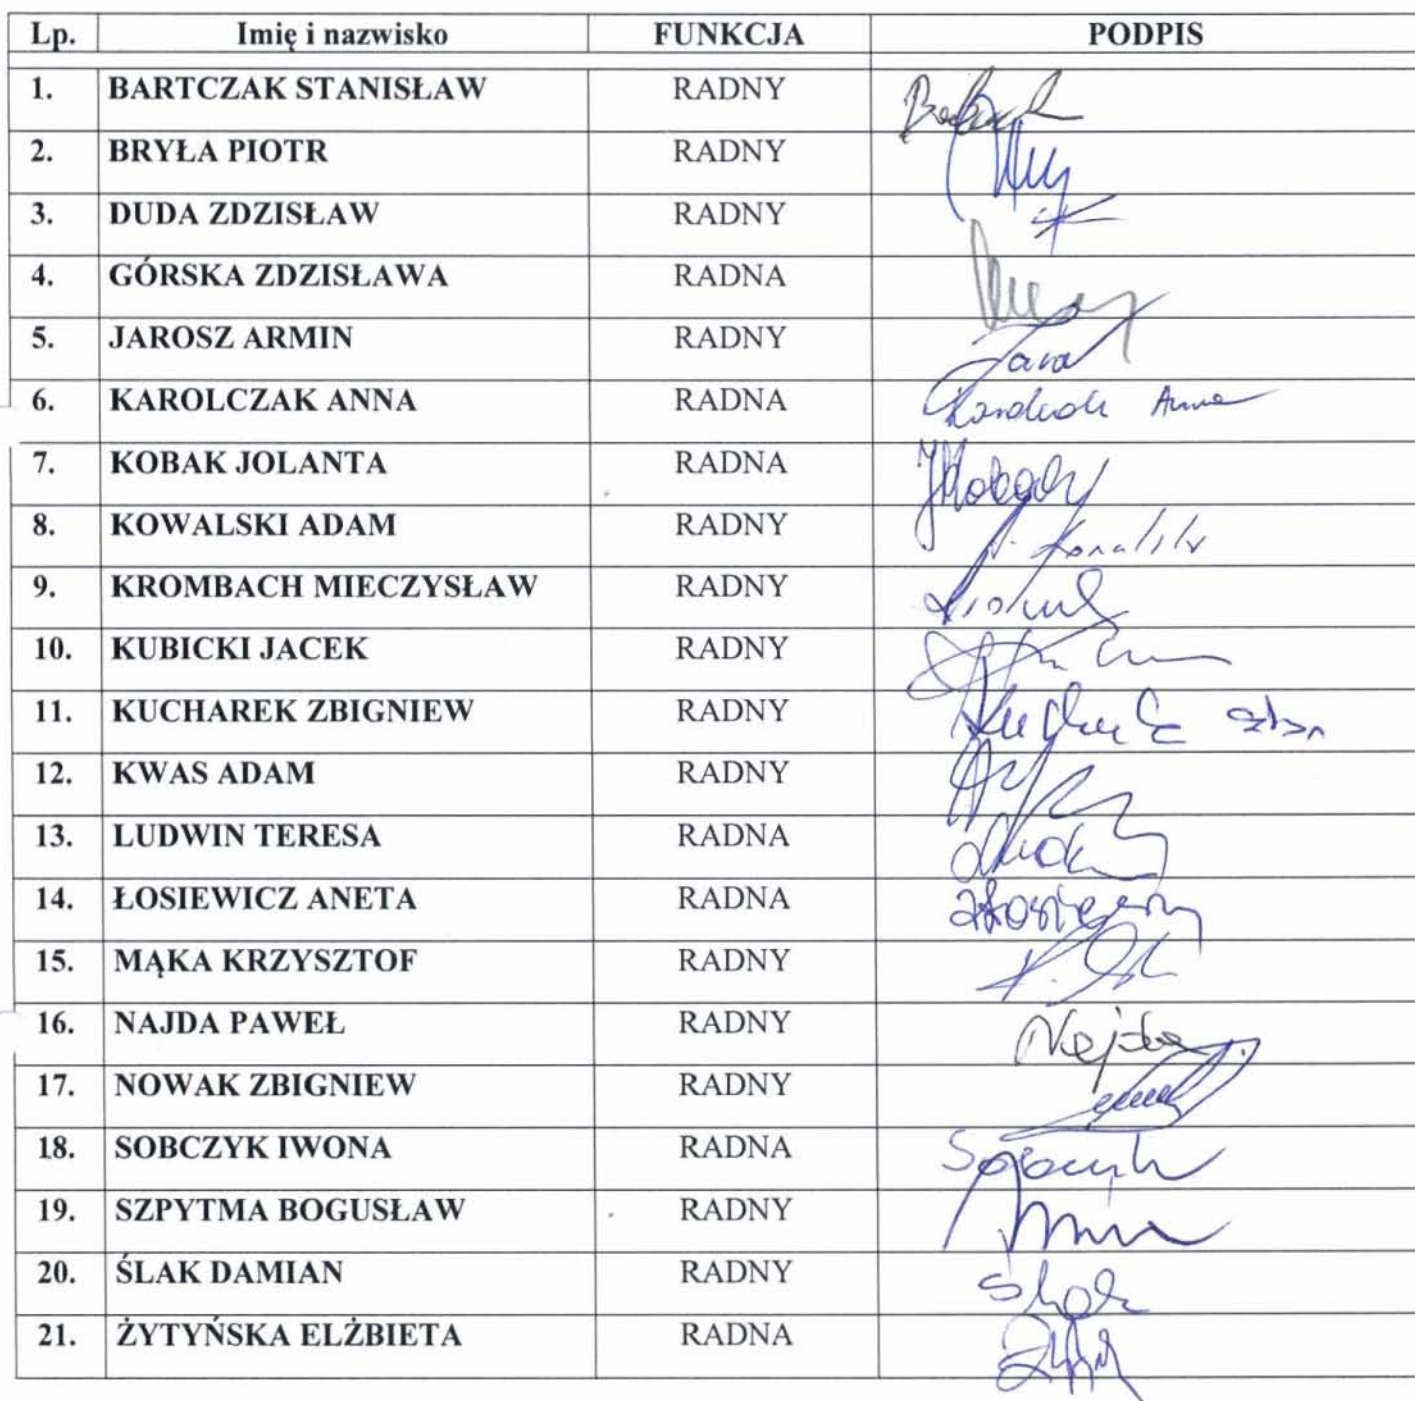 Lp. Imię i nazwisko FUNKCJA PODPIS
1. BARTCZAK STANISŁAW RADNY
2. BRYŁA PIOTR RADNY
3. DUDA ZDZISŁAW RADNY
4. GÓRSKA ZDZISŁAWA RADNA
5. JAROSZ ARMIN RADNY
6. KAROLCZAK ANNA RADNA Karolczak Anna
7. KOBAK JOLANTA RADNA JKobak
8. KOWALSKI ADAM RADNY A. Kowalski
9. KROMBACH MIECZYSŁAW RADNY
10. KUBICKI JACEK RADNY
11. KUCHAREK ZBIGNIEW RADNY
12. KWAS ADAM RADNY
13. LUDWIN TERESA RADNA
14. ŁOSIEWICZ ANETA RADNA
15. MĄKA KRZYSZTOF RADNY
16. NAJDA PAWEŁ RADNY Najda
17. NOWAK ZBIGNIEW RADNY
18. SOBCZYK IWONA RADNA Sobczyk
19. SZPYTMA BOGUSŁAW RADNY
20. ŚLAK DAMIAN RADNY Ślak
21. ŻYTYŃSKA ELŻBIETA RADNA